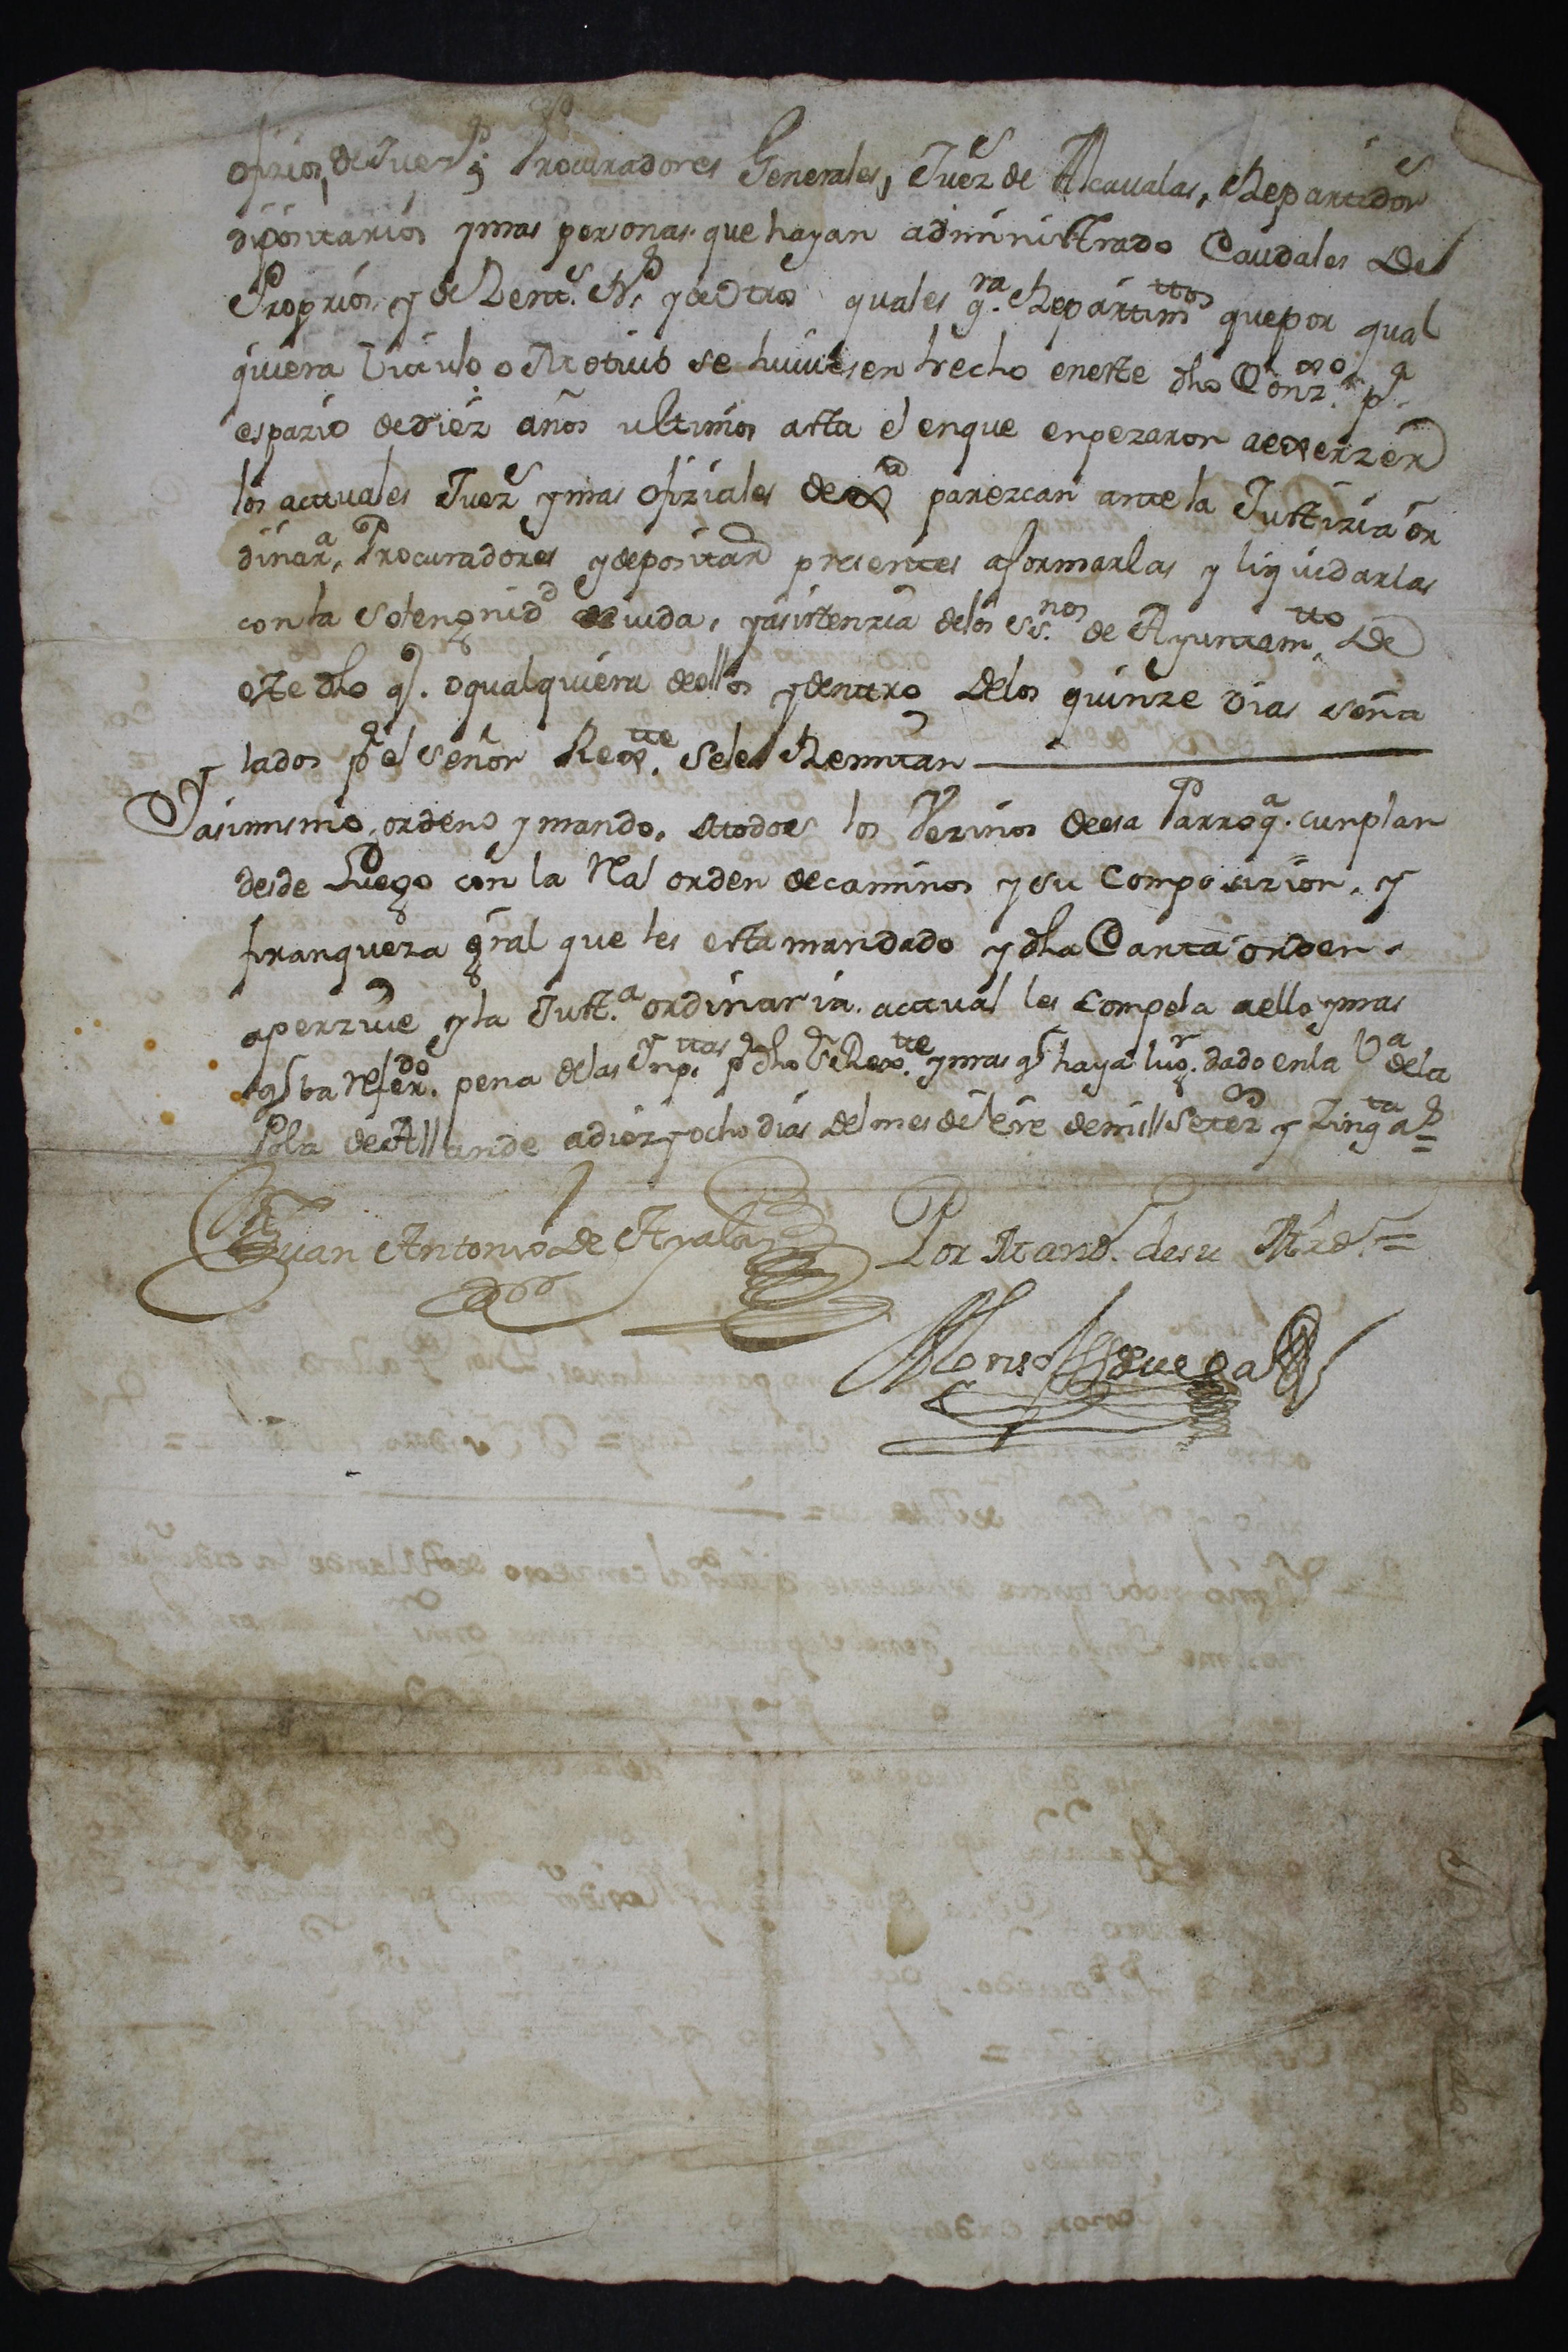 ofizios, de Juezs, Procuradores Generales, Juez de Alcavalas, Repartidors
dipositarios y mas personas que hayan administrado Caudales del
Proprios y de Rents. Rs. y de otros quales qra. Repartimttos que por qual
quiera titulo o Motivo se huviesen hecho en este dho Conzo. pr.
espazio de diez años ultimos asta el en que enpezaron a exerzer
los actuales Juezs y mas ofiziales de parezcan ante la Justizia or
dinara, Procuradores y depositars presentes a formarlas y liquidarlas
con la solengnidd devida, y asistenzia de los ss.nos de Ayuntamtto. De
este dho qo. o qualquiera de ellos y dentro de los quinze dias seña
lados pr el señor Rexte. se les Remitan
Y asimismo, ordeno y mando, a todos los Vezinos de esa Parroqa. cunplan
desde Luego con la Rl orden de caminos y su composizion, y
franqueza gral que les esta mandado y dha Carta orden
aperzive y la Justa. ordinaria actual les compela a ello y mas
qe va Referdo. pena de las Ynpttas pr dho Sr Rexte. y mas qe haya lugr. dado en la Va de la
Pola de Allande a diez y ocho dias del mes de Ene de mill Setezs y Zinqta as=
Juan Antonio de Ayala
Por Mando. de su Mrd.=
Alonso